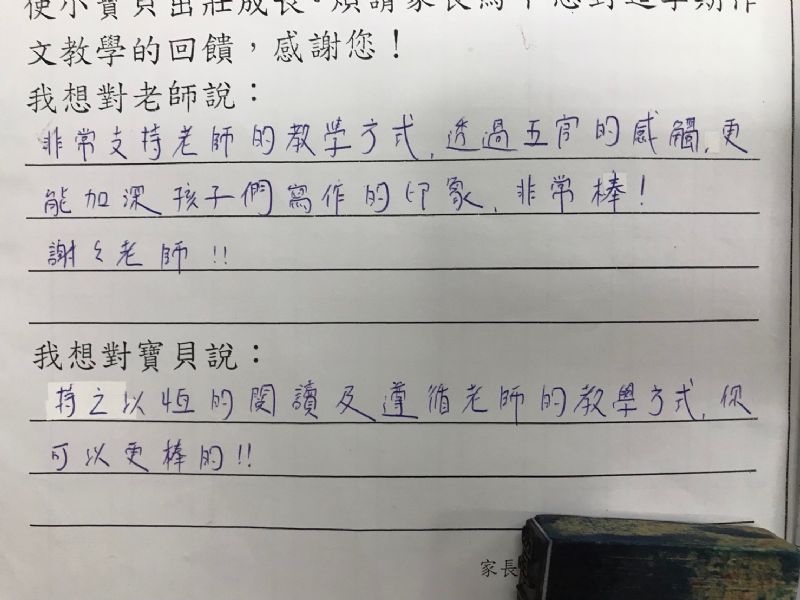 使小寶貝茁壯成長。煩請家長寫下您對這學期作
文教學的回饋，感謝您！
我想對老師說：
非常支持老師的教學方式,透過五官的感觸,更
能加深孩子們寫作的印象,非常棒!
謝々老師!!
我想對寶貝說：
持之以恆的閱讀及遵循老師的教學方式,你
可以更棒的!!
家長